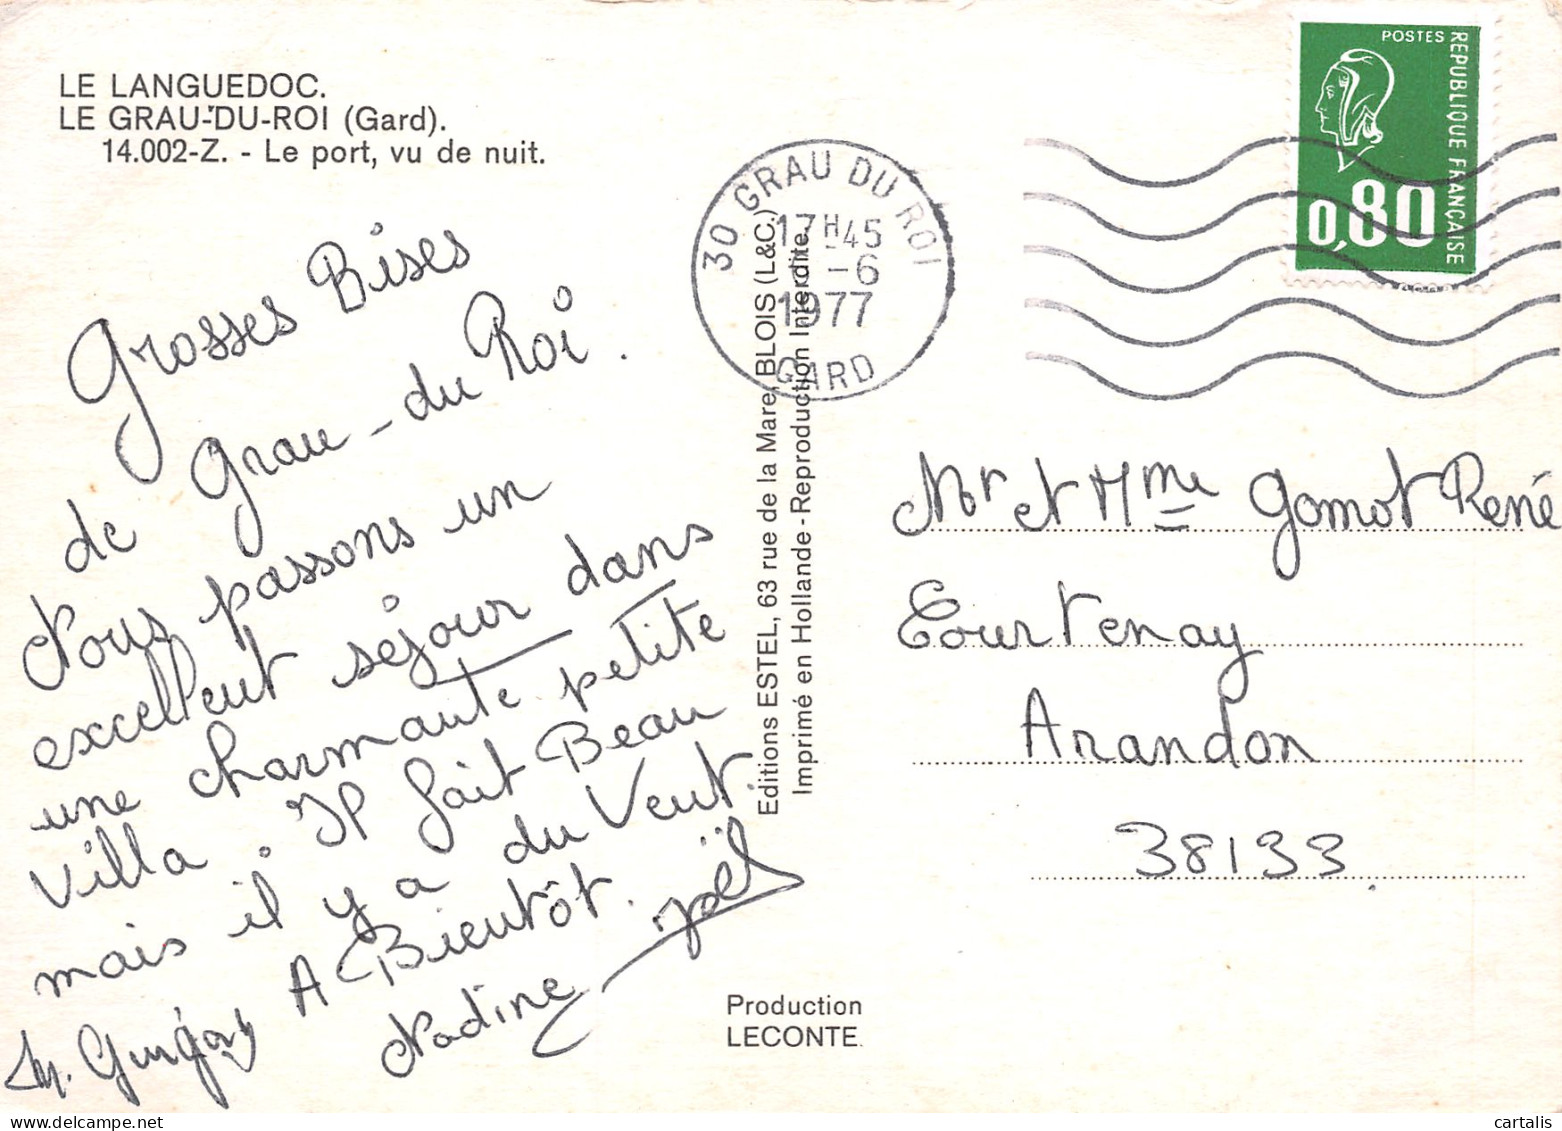 LE LANGUEDOC.
LE GRAU-DU-ROI (Gard).
14.002-Z. - Le port, vu de nuit.
POSTES
REPUBLIQUE FRANÇAISE
0,80
30 GRAU DU ROI
17H45
-6
1977
GARD
Grosses Bises
de Grau-du Roi.
Nous passons un
excellent séjour dans
une charmante petite
Villa. Il fait Beau
mais il y a du Vent.
A Bientôt.
Nadine Joël
Editions ESTEL, 63 rue de la Mare, BLOIS (L&C.)
Imprimé en Hollande - Reproduction Interdite.
Mr et Mme Gomot René
Courtenay
Arandon
38133.
Production
LECONTE
cartalis